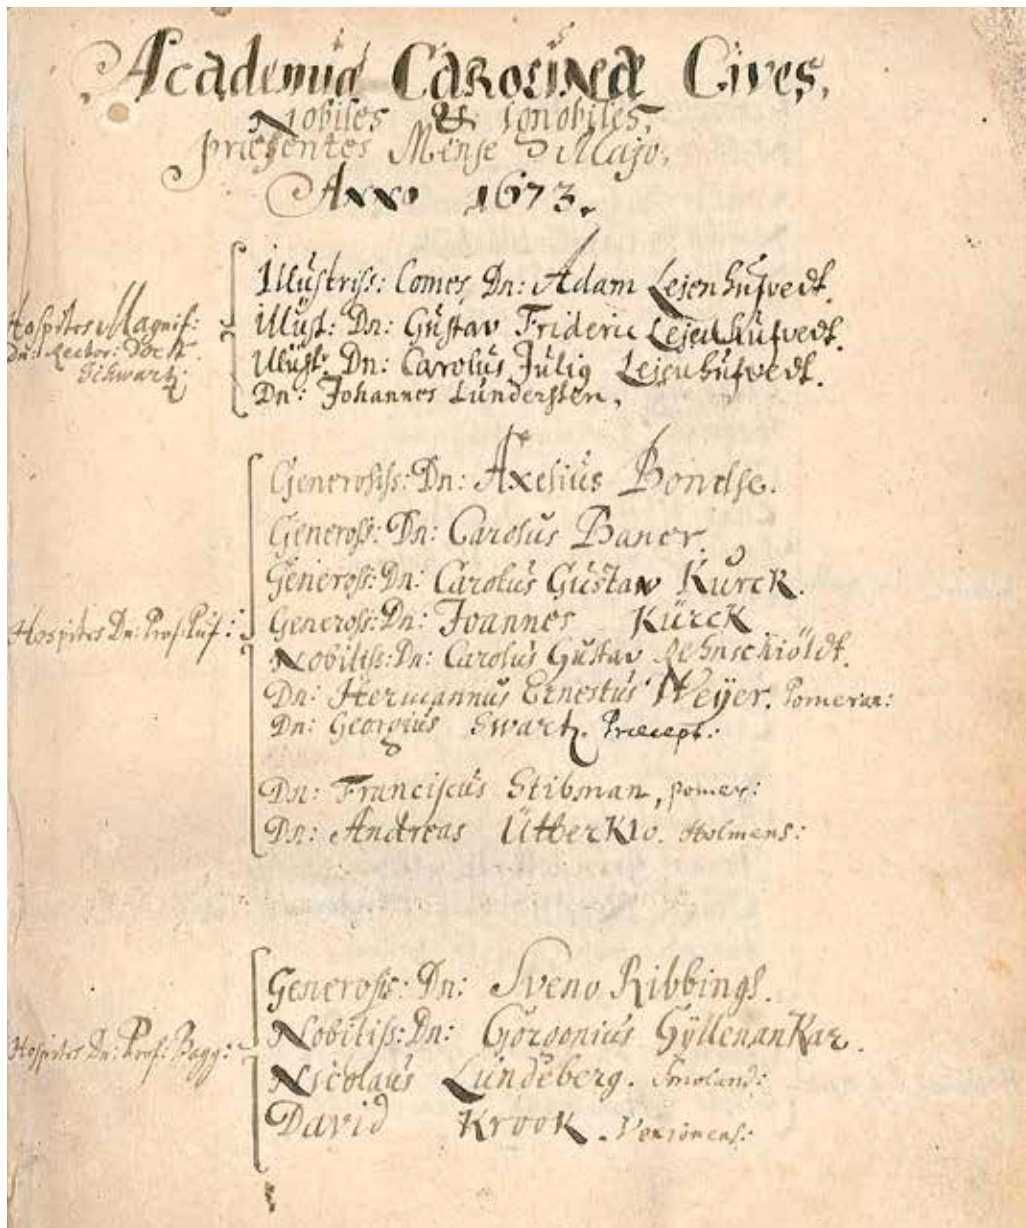 Academiæ Carolinæ Cives,
Nobiles & Ignobiles,
præsentes Mense Majo,
Anno 1673.
Hospites Magnif:
Dn: Rector: Doct.
Schwartz
Illustriss: Comes, Dn: Adam Lejenhufvedt.
Illust: Dn: Gustav Frideric Lejenhufvedt.
Illust: Dn: Carolus Julig Lejenhufvedt.
Dn: Johannes Lundersten,
Hospites Dn: Prof: Puf:
Generosiss: Dn: Axelius Bondse.
Geneross: Dn: Carolus Baner.
Geneross: Dn: Carolus Gustaw Kurck.
Geneross: Dn: Joannes Kürck
Nobiliss: Dn: Carolus Gustav Lehnschiöldt.
Dn: Hermannus Ernestus Weÿer. Pomeran:
Dn: Georgius Swartz. Præcept:
Dn: Franciscus Stibman, pomer:
Dn: Andreas ÜtterKlo. Holmens:
Hospites Dn: Prof: Bagg:
Generosis: Dn: Sveno Ribbings.
Nobiliss: Dn: Gordonius GÿllenanKar.
Nicolaus Lundeberg. Smoland:
David Krook. Vexionens: